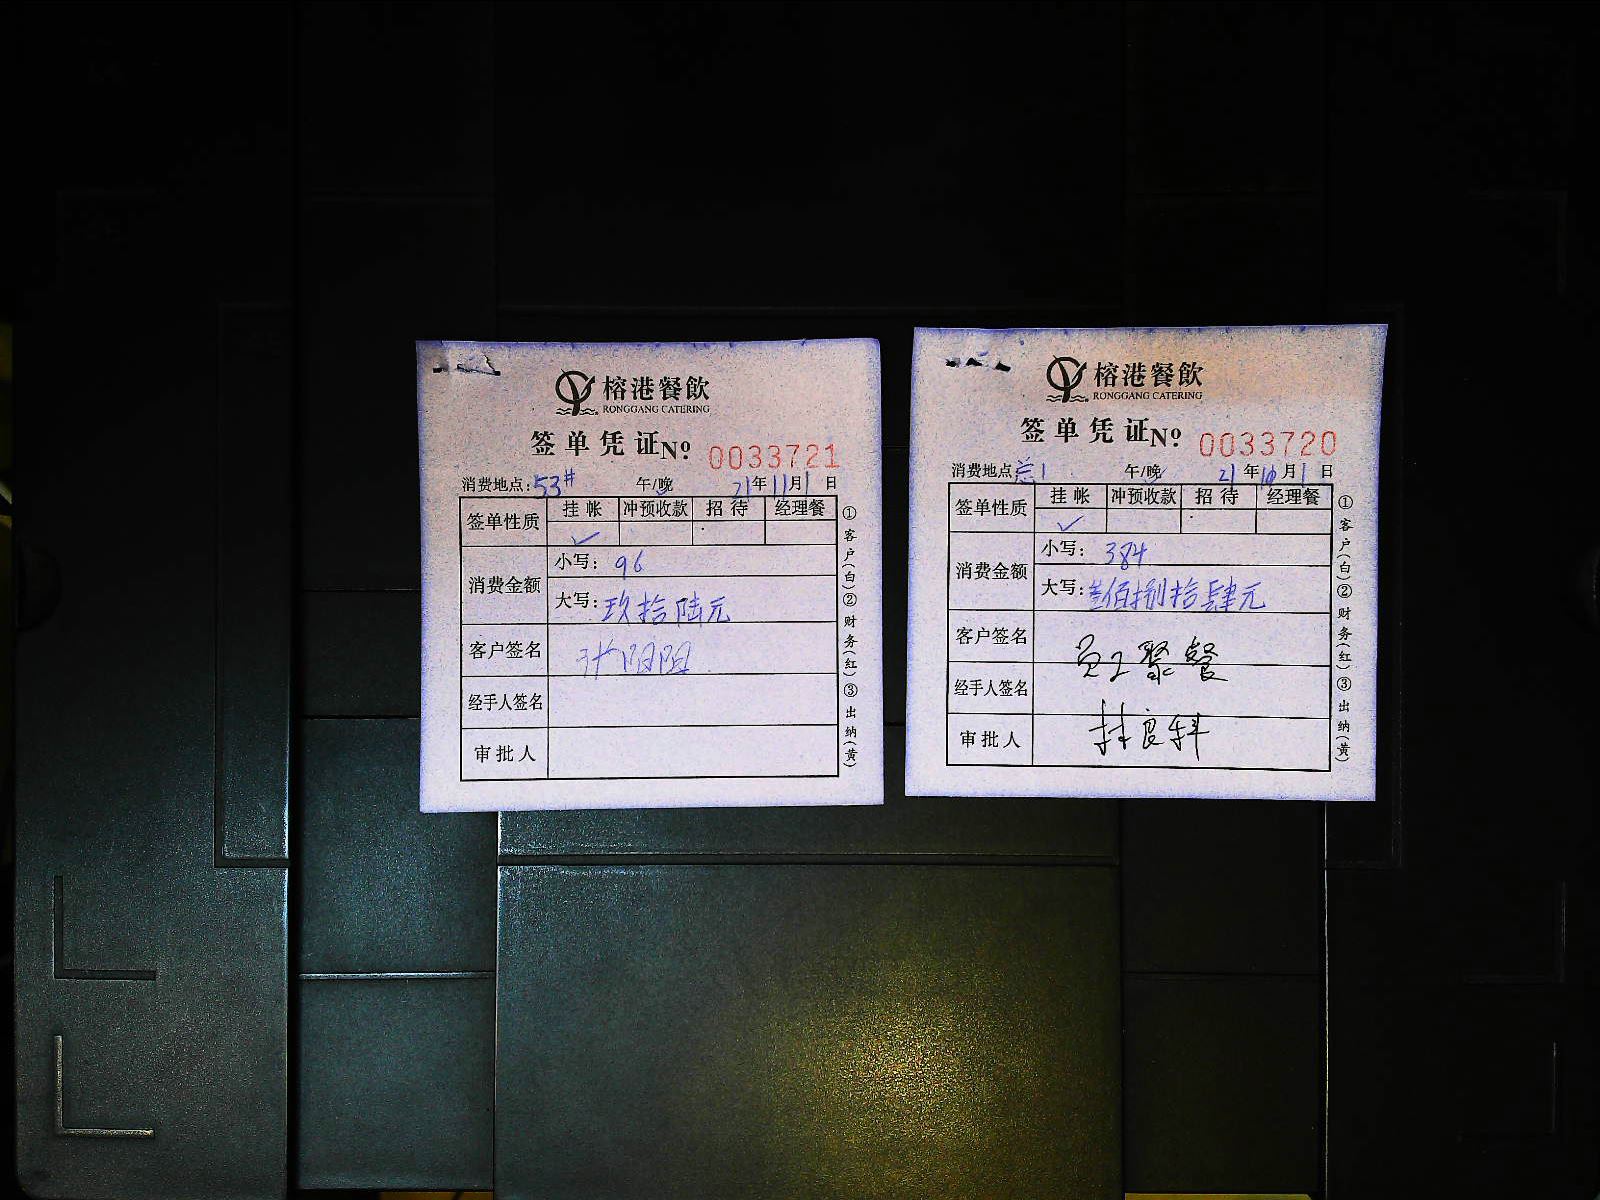 榕港餐飲
RONGGANG CATERING
签单凭证№ 0033721
消费地点:53# 午/晚 21年11月1日
签单性质 挂帐 冲预收款 招待 经理餐
✓
消费金额 小写: 96
大写: 玖拾陆元
客户签名 阳阳
经手人签名
审批人
①客户(白)②财务(红)③出纳(黄)
榕港餐飲
RONGGANG CATERING
签单凭证№ 0033720
消费地点 1 午/晚 21年10月1日
签单性质 挂帐 冲预收款 招待 经理餐
✓
消费金额 小写: 384
大写: 叁佰捌拾肆元
客户签名 员工聚餐
经手人签名
审批人 良科
①客户(白)②财务(红)③出纳(黄)